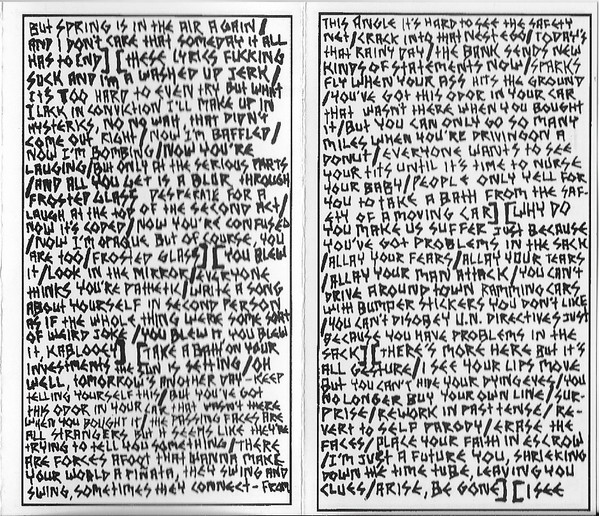 BUT SPRING IS IN THE AIR AGAIN/
AND I DON'T CARE THAT SOMEDAY IT ALL
HAS TO END][THESE LYRICS FUCKING
SUCK AND I'M A WASHED UP JERK/
IT'S TOO HARD TO EVEN TRY BUT WHAT
I LACK IN CONVICTION I'LL MAKE UP IN
HYSTERICS, NO NO WAIT THAT DIDN'T
COME OUT RIGHT/NOW I'M BAFFLED/
NOW I'M BOMBING/NOW YOU'RE
LAUGING/BUT ONLY AT THE SERIOUS PARTS
/AND ALL YOU GET IS A BLUR THROUGH
FROSTED GLASS DESPERATE FOR A
LAUGH AT THE TOP OF THE SECOND ACT/
NOW IT'S CODED/NOW YOU'RE CONFUSED
/NOW I'M OPAQUE BUT OF COURSE, YOU
ARE TOO/FROSTED GLASS][YOU BLEW
IT/LOOK IN THE MIRROR/EVERYONE
THINKS YOU'RE PATHETIC/WRITE A SONG
ABOUT YOURSELF IN SECOND PERSON
AS IF THE WHOLE THING WERE SOME SORT
OF WEIRD JOKE/YOU BLEW IT YOU BLEW
IT, KABLOOEY][TAKE A BATH ON YOUR
INVESTMENTS THE SUN IS SETTING/OH
WELL, TOMORROW'S ANOTHER DAY-KEEP
TELLING YOURSELF THIS/BUT YOU'VE GOT
THIS ODOR IN YOUR CAR THAT WASN'T THERE
WHEN YOU BOUGHT IT/THE PASSING FACES ARE
ALL STRANGERS BUT IT SEEMS LIKE THEY'RE
TRYING TO TELL YOU SOMETHING/THERE
ARE FORCES AFOOT THAT WANNA MAKE
YOUR WORLD A PIÑATA, THEY SWING AND
SWING, SOMETIMES THEY CONNECT-FROM
THIS ANGLE IT'S HARD TO SEE THE SAFETY
NET/CRACK INTO THAT NEST EGG/TODAY'S
THAT RAINY DAY/THE BANK SENDS NEW
KINDS OF STATEMENTS NOW/SPARKS
FLY WHEN YOUR ASS HITS THE GROUND
/YOU'VE GOT THIS ODOR IN YOUR CAR
THAT WASN'T THERE WHEN YOU BOUGHT
IT/BUT YOU CAN ONLY GO SO MANY
MILES WHEN YOU'RE DRIVING ON A
DONUT/EVERYONE WANTS TO SEE
YOUR TITS UNTIL IT'S TIME TO NURSE
YOUR BABY/PEOPLE ONLY YELL FOR
YOU TO TAKE A BATH FROM THE SAF-
ETY OF A MOVING CAR][WHY DO
YOU MAKE US SUFFER JUST BECAUSE
YOU'VE GOT PROBLEMS IN THE SACK
/ALLAY YOUR FEARS/ALLAY YOUR TEARS
/ALLAY YOUR MAN ATTACK/YOU CAN'T
DRIVE AROUND TOWN RAMMING CARS
WITH BUMPER STICKERS YOU DON'T LIKE
/YOU CAN'T DISOBEY U.N. DIRECTIVES JUST
BECAUSE YOU HAVE PROBLEMS IN THE
SACK][THERE'S MORE HERE BUT IT'S
ALL GESTURE/I SEE YOUR LIPS MOVE
BUT YOU CAN'T HIDE YOUR DYING EYES/YOU
NO LONGER BUY YOUR OWN LINE/SUR-
PRISE/REWORK IN PAST TENSE/RE-
VERT TO SELF PARODY/ERASE THE
FACES/PLACE YOUR FAITH IN ESCROW
/I'M JUST A FUTURE YOU, SHRIEKING
DOWN THE TIME TUBE, LEAVING YOU
CLUES/ARISE, BE GONE][I SEE